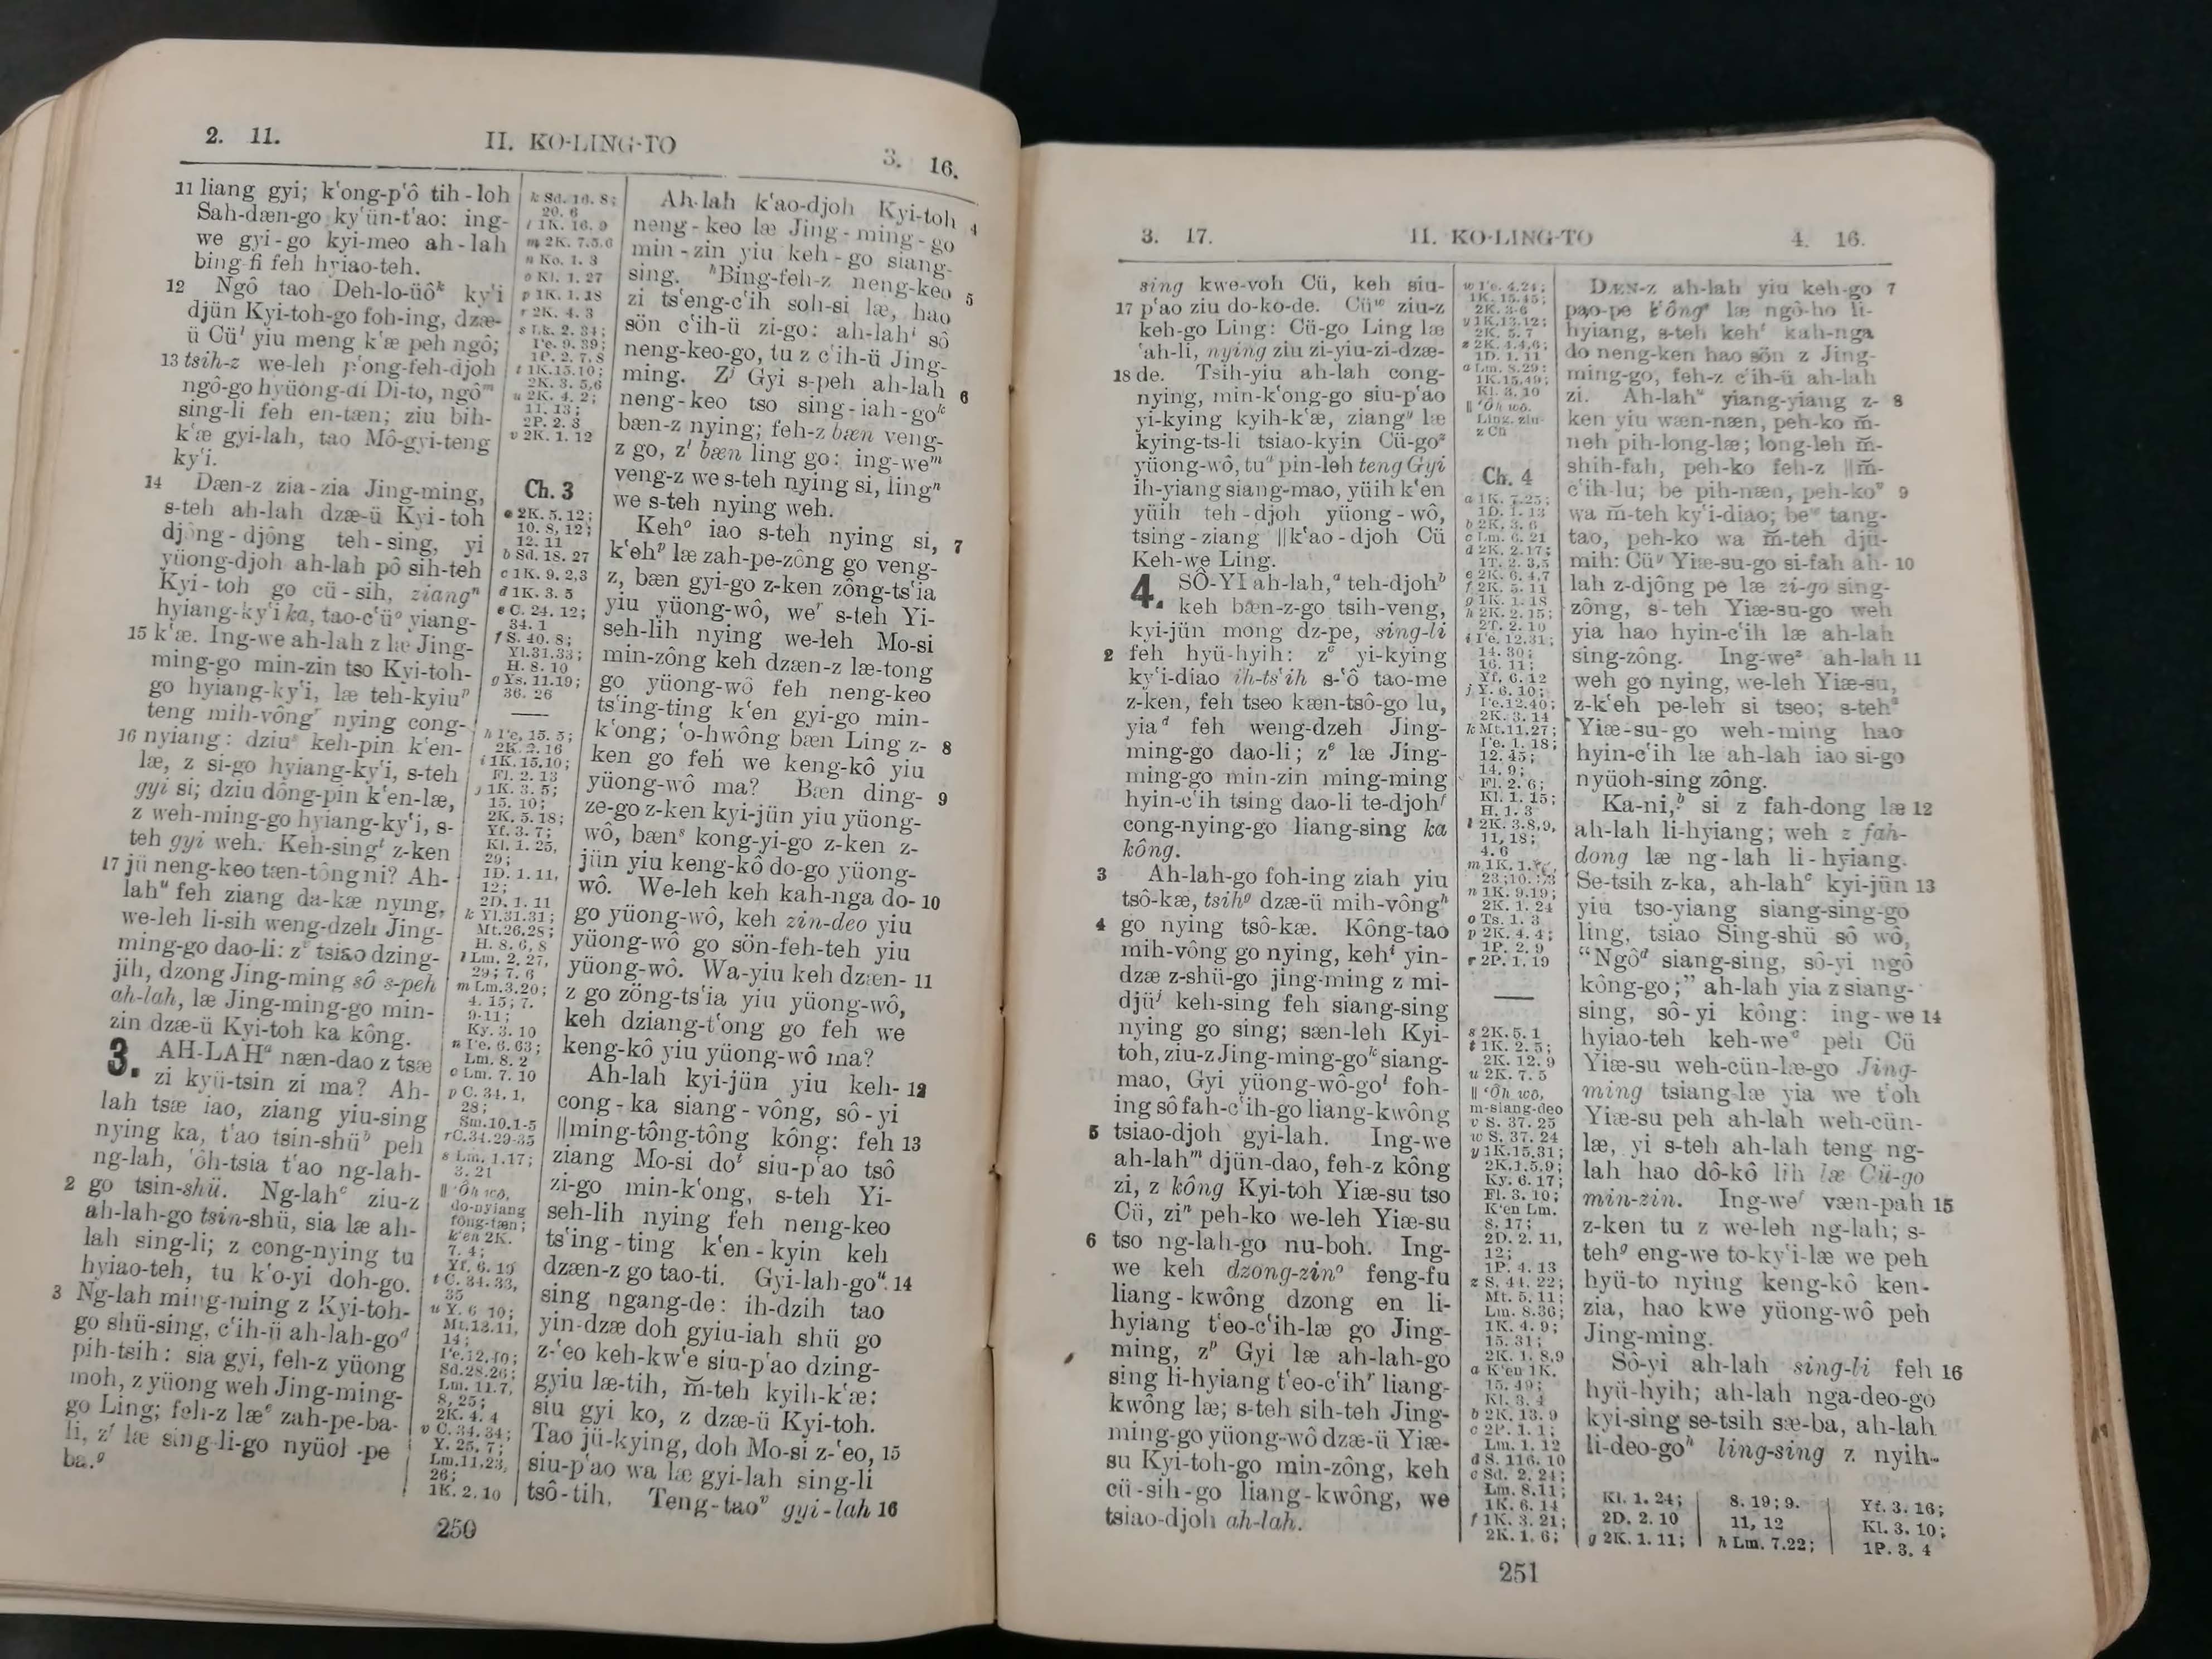 2. 11.
II. KO-LING-TO
3. 16.
11 liang gyi; k‘ong-p‘ô tih-loh
Sah-dæn-go ky‘ün-t‘ao: ing-
we gyi-go kyi-meo ah-lah
bing-fi feh hyiao-teh.
12 Ngô tao Deh-lo-üôᵏ ky‘i
djün Kyi-toh-go foh-ing, dzæ-
ü Cüˡ yiu meng k‘æ peh ngô;
13 tsih-z we-leh p‘ong-feh-djoh
ngô-go hyüong-di Di-to, ngôᵐ
sing-li feh en-tæn; ziu bih-
k‘æ gyi-lah, tao Mô-gyi-teng
ky‘i.
14 Dæn-z zia-zia Jing-ming,
s-teh ah-lah dzæ-ü Kyi-toh
djông-djông teh-sing, yi
yüong-djoh ah-lah pô sih-teh
Kyi-toh go cü-sih, ziangⁿ
hyiang-ky‘i ka, tao-c‘üᵒ yiang-
15 k‘æ. Ing-we ah-lah z læ Jing-
ming-go min-zin tso Kyi-toh-
go hyiang-ky‘i, læ teh-kyiuᵖ
teng mih-vôngʳ nying cong-
16 nyiang: dziuˢ keh-pin k‘en-
læ, z si-go hyiang-ky‘i, s-teh
gyi si; dziu dông-pin k‘en-læ,
z weh-ming-go hyiang-ky‘i, s-
teh gyi weh. Keh-singᵗ z-ken
17 jü neng-keo tæn-tông ni? Ah-
lahᵘ feh ziang da-kæ nying,
we-leh li-sih weng-dzeh Jing-
ming-go dao-li: zᵛ tsiao dzing-
jih, dzong Jing-ming sô s-peh
ah-lah, læ Jing-ming-go min-
zin dzæ-ü Kyi-toh ka kông.
3. AH-LAHᵃ næn-dao z tsæ
zi kyü-tsin zi ma? Ah-
lah tsæ iao, ziang yiu-sing
nying ka, t‘ao tsin-shüᵇ peh
ng-lah, ‘ôh-tsia t‘ao ng-lah-
2 go tsin-shü. Ng-lahᶜ ziu-z
ah-lah-go tsin-shü, sia læ ah-
lah sing-li; z cong-nying tu
hyiao-teh, tu k‘o-yi doh-go.
3 Ng-lah ming-ming z Kyi-toh-
go shü-sing, c‘ih-ü ah-lah-goᵈ
pih-tsih: sia gyi, feh-z yüong
moh, z yüong weh Jing-ming-
go Ling; feh-z læᵉ zah-pe-ba-
li, zᶠ læ sing-li-go nyüoh-pe
ba.ᵍ
k Sd. 16. 8;
20. 6
l 1K. 16. 9
m 2K. 7.5,6
n Ko. 1. 3
o Kl. 1. 27
p 1K. 1. 18
r 2K. 4. 3
s Lk. 2. 34;
I‘e. 9. 39;
1P. 2. 7, 8
t 1K.15.10;
2K. 3. 5,6
u 2K. 4. 2;
11. 13;
2P. 2. 3
v 2K. 1. 12
Ch. 3
a 2K. 5. 12;
10. 8, 12;
12. 11
b Sd. 18. 27
c 1K. 9. 2,3
d 1K. 3. 5
e C. 24. 12;
34. 1
f S. 40. 8;
Yl.31.33;
H. 8. 10
g Ys. 11.19;
36. 26
h I‘e. 15. 5;
2K. 2. 16
i 1K.15.10;
Fl. 2. 13
j 1K. 3. 5;
15. 10;
2K. 5.18;
Yf. 3. 7;
Kl. 1. 25,
29;
1D. 1. 11,
12;
2D. 1. 11
k Yl.31.31;
Mt.26.28;
H. 8. 6, 8
l Lm. 2. 27,
29; 7. 6
m Lm.3.20;
4. 15; 7.
9-11;
Ky. 3. 10
n I‘e. 6.63;
Lm. 8. 2
o Lm. 7. 10
p C. 34. 1,
28;
Sm.10.1-5
r C.34.29-35
s Lm. 1.17;
3. 21
‖ ‘Ôh wô,
do-nyiang
tông-tæn;
k‘en 2K.
7. 4;
Yf. 6. 19
t C. 34. 33,
35
u Y. 6 10;
Mt.13.11,
14;
I‘e.12.40;
Sd.28.26;
Lm. 11.7,
8, 25;
2K. 4. 4
v C. 34.34;
Y. 25. 7;
Lm.11.23,
26;
1K. 2. 10
Ah-lah k‘ao-djoh Kyi-toh 4
neng-keo læ Jing-ming-go
min-zin yiu keh-go siang-
sing. ʰBing-feh-z neng-keo 5
zi ts‘eng-c‘ih soh-si læ, hao
sön c‘ih-ü zi-go: ah-lahⁱ sô
neng-keo-go, tu z c‘ih-ü Jing-
ming. Zʲ Gyi s-peh ah-lah 6
neng-keo tso sing-iah-goᵏ
bæn-z nying; feh-z bæn veng-
z go, zˡ bæn ling go: ing-weᵐ
veng-z we s-teh nying si, lingⁿ
we s-teh nying weh.
Kehᵒ iao s-teh nying si, 7
k‘ehᵖ læ zah-pe-zông go veng-
z, bæn gyi-go z-ken zông-ts‘ia
yiu yüong-wô, weʳ s-teh Yi-
seh-lih nying we-leh Mo-si
min-zông keh dzæn-z læ-tong
go yüong-wô feh neng-keo
ts‘ing-ting k‘en gyi-go min-
k‘ong; ‘o-hwông bæn Ling z- 8
ken go feh we keng-kô yiu
yüong-wô ma? Bæn ding- 9
ze-go z-ken kyi-jün yiu yüong-
wô, bænˢ kong-yi-go z-ken z-
jün yiu keng-kô do-go yüong-
wô. We-leh keh kah-nga do- 10
go yüong-wô, keh zin-deo yiu
yüong-wô go sön-feh-teh yiu
yüong-wô. Wa-yiu keh dzæn- 11
z go zông-ts‘ia yiu yüong-wô,
keh dziang-t‘ong go feh we
keng-kô yiu yüong-wô ma?
Ah-lah kyi-jün yiu keh- 12
cong-ka siang-vông, sô-yi
‖ming-tông-tông kông: feh 13
ziang Mo-si doᵗ siu-p‘ao tsô
zi-go min-k‘ong, s-teh Yi-
seh-lih nying feh neng-keo
ts‘ing-ting k‘en-kyin keh
dzæn-z go tao-ti. Gyi-lah-goᵘ 14
sing ngang-de: ih-dzih tao
yin-dzæ doh gyiu-iah shü go
z-‘eo keh-kw‘e siu-p‘ao dzing-
gyiu læ-tih, m̆-teh kyih-k‘æ:
siu gyi ko, z dzæ-ü Kyi-toh.
Tao jü-kying, doh Mo-si z-‘eo, 15
siu-p‘ao wa læ gyi-lah sing-li
tsô-tih. Teng-taoᵛ gyi-lah 16
250
3. 17.
II. KO-LING-TO
4. 16.
sing kwe-voh Cü, keh siu-
17 p‘ao ziu do-ko-de. Cüʷ ziu-z
keh-go Ling: Cü-go Ling læ
‘ah-li, nying ziu zi-yiu-zi-dzæ-
18 de. Tsih-yiu ah-lah cong-
nying, min-k‘ong-go siu-p‘ao
yi-kying kyih-k‘æ, ziangʸ læ
kying-ts-li tsiao-kyin Cü-goᶻ
yüong-wô, tuᵃ pin-leh teng Gyi
ih-yiang siang-mao, yüih k‘en
yüih teh-djoh yüong-wô,
tsing-ziang ‖k‘ao-djoh Cü
Keh-we Ling.
4. SÔ-YI ah-lah,ᵃ teh-djohᵇ
keh bæn-z-go tsih-veng,
kyi-jün mong dz-pe, sing-li
2 feh hyü-hyih: zᶜ yi-kying
ky‘i-diao ih-ts‘ih s-‘ô tao-me
z-ken, feh tseo kæn-tsô-go lu,
yiaᵈ feh weng-dzeh Jing-
ming-go dao-li; zᵉ læ Jing-
ming-go min-zin ming-ming
hyin-c‘ih tsing dao-li te-djohᶠ
cong-nying-go liang-sing ka
kông.
3 Ah-lah-go foh-ing ziah yiu
tsô-kæ, tsihᵍ dzæ-ü mih-vôngʰ
4 go nying tsô-kæ. Kông-tao
mih-vông go nying, kehⁱ yin-
dzæ z-shü-go jing-ming z mi-
djüʲ keh-sing feh siang-sing
nying go sing; sæn-leh Kyi-
toh, ziu-z Jing-ming-goᵏ siang-
mao, Gyi yüong-wô-goˡ foh-
ing sô fah-c‘ih-go liang-kwông
5 tsiao-djoh gyi-lah. Ing-we
ah-lahᵐ djün-dao, feh-z kông
zi, z kông Kyi-toh Yiæ-su tso
Cü, ziⁿ peh-ko we-leh Yiæ-su
6 tso ng-lah-go nu-boh. Ing-
we keh dzong-zinᵒ feng-fu
liang-kwông dzong en li-
hyiang t‘eo-c‘ih-læ go Jing-
ming, zᵖ Gyi læ ah-lah-go
sing li-hyiang t‘eo-c‘ihʳ liang-
kwông læ; s-teh sih-teh Jing-
ming-go yüong-wô dzæ-ü Yiæ-
su Kyi-toh-go min-zông, keh
cü-sih-go liang-kwông, we
tsiao-djoh ah-lah.
w I‘e. 4.24;
1K. 15.45;
2K. 3-6
y 1K.13.12;
2K. 5. 7
z 2K. 4.4,6;
1D. 1. 11
a Lm. 8.29;
1K.15.49;
Kl. 3. 10
‖ ‘Ôh wô,
Ling, ziu-
z Cü
Ch. 4
a 1K. 7.25;
1D. 1. 13
b 2K. 3. 6
c Lm. 6. 21
d 2K. 2.17;
1T. 2. 3,5
e 2K. 6. 4,7
f 2K. 5. 11
g 1K. 1. 18
h 2K. 2. 15;
2T. 2. 10
i I‘e. 12.31;
14. 30;
16. 11;
Yf. 6. 12
j Y. 6. 10;
I‘e.12.40;
2K. 3. 14
k Mt.11.27;
I‘e. 1. 18;
12. 45;
14. 9;
Fl. 2. 6;
Kl. 1. 15;
H. 1. 3
l 2K. 3.8,9,
11, 18;
4. 6
n 1K. 9.19;
2K. 1. 24
o Ts. 1. 3
p 2K. 4. 4;
1P. 2. 9
r 2P. 1. 19
s 2K. 5. 1
t 1K. 2. 5;
2K. 12. 9
u 2K. 7. 5
‖ ‘Ôh wô,
m-siang-deo
v S. 37. 25
w S. 37. 24
y 1K.15.31;
2K.1.5,9;
Ky. 6. 17;
Fl. 3. 10;
K‘en Lm.
8. 17;
2D. 2. 11,
12;
1P. 4. 13
z S. 44. 22;
Mt. 5. 11;
Lm. 8.36;
1K. 4. 9;
15. 31;
2K. 1. 8,9
a K‘en 1K.
15. 49;
Kl. 3. 4
b 2K. 13. 9
c 2P. 1. 1;
Lm. 1. 12
d S. 116. 10
e Sd. 2. 24;
Lm. 8.11;
1K. 6. 14
f 1K. 3. 21;
2K. 1. 6;
DÆN-z ah-lah yiu keh-go 7
pao-pe k‘ôngˢ læ ngô-ho li-
hyiang, s-teh kehᵗ kah-nga
do neng-ken hao sön z Jing-
ming-go, feh-z c‘ih-ü ah-lah
zi. Ah-lahᵘ yiang-yiang z- 8
ken yiu wæn-næn, peh-ko m̆-
neh pih-long-læ; long-leh m̆-
shih-fah, peh-ko feh-z ‖m̆-
c‘ih-lu; be pih-næn, peh-koᵛ 9
wa m̆-teh ky‘i-diao; beʷ tang-
tao, peh-ko wa m̆-teh djü-
mih: Cüʸ Yiæ-su-go si-fah ah- 10
lah z-djông pe læ zi-go sing-
zông, s-teh Yiæ-su-go weh
yia hao hyin-c‘ih læ ah-lah
sing-zông. Ing-weᶻ ah-lah 11
weh go nying, we-leh Yiæ-su,
z-k‘eh pe-leh si tseo; s-tehᵃ
Yiæ-su-go weh-ming hao
hyin-c‘ih læ ah-lah iao si-go
nyüoh-sing zông.
Ka-ni,ᵇ si z fah-dong læ 12
ah-lah li-hyiang; weh z fah-
dong læ ng-lah li-hyiang.
Se-tsih z-ka, ah-lahᶜ kyi-jün 13
yiu tso-yiang siang-sing-go
ling, tsiao Sing-shü sô wô,
“Ngôᵈ siang-sing, sô-yi ngô
kông-go;” ah-lah yia z siang-
sing, sô-yi kông: ing-we 14
hyiao-teh keh-weᵉ peh Cü
Yiæ-su weh-cün-læ-go Jing-
ming tsiang-læ yia we t‘oh
Yiæ-su peh ah-lah weh-cün-
læ, yi s-teh ah-lah teng ng-
lah hao dô-kô lih læ Cü-go
min-zin. Ing-weᶠ væn-pah 15
z-ken tu z we-leh ng-lah; s-
tehᵍ eng-we to-ky‘i-læ we peh
hyü-to nying keng-kô ken-
zia, hao kwe yüong-wô peh
Jing-ming.
Sô-yi ah-lah sing-li feh 16
hyü-hyih; ah-lah nga-deo-go
kyi-sing se-tsih sæ-ba, ah-lah
li-deo-goʰ ling-sing z nyih-
Kl. 1. 24;
2D. 2. 10
g 2K. 1. 11;
8. 19; 9.
11, 12
h Lm. 7.22;
Yf. 3. 16;
Kl. 3. 10;
1P. 3. 4
251